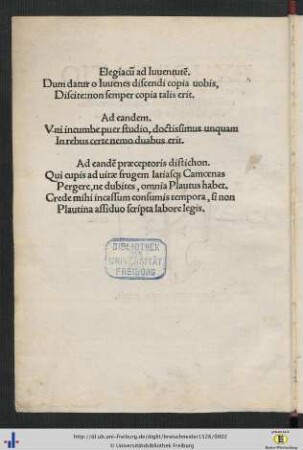 Elegiacũ ad Iuuentutẽ.
Dum datur o Iuuenes discendi copia uobis,
Discite: non semper copia talis erit.
Ad eandem.
Vni incumbe puer studio, doctissimus unquam
In rebus certe nemo duabus erit.
Ad eandẽ præceptoris distichon.
Qui cupis ad uitæ frugem latiasq; Camœnas
Pergere, ne dubites, omnia Plautus habet.
Crede mihi incassum consumis tempora, si non
Plautina assiduo scripta labore legis.
BIBLIOTHEK
UNIVERSITÄT
FREIBURG
http://dl.ub.uni-freiburg.de/diglit/bretschneider1528/0002
© Universitätsbibliothek Freiburg